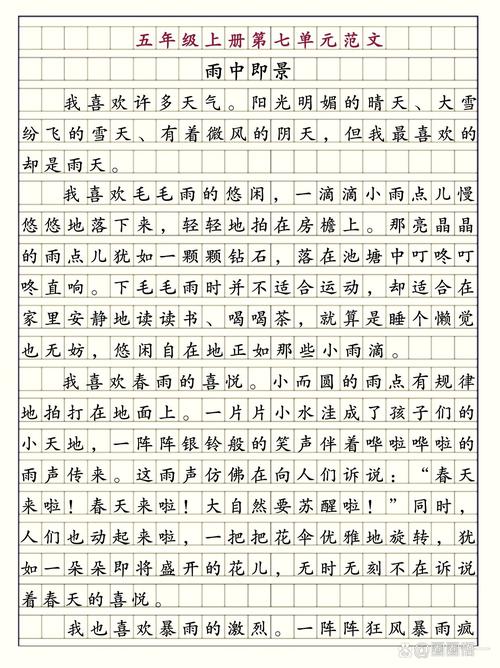 五年级上册第七单元范文
雨中即景
我喜欢许多天气。阳光明媚的晴天、大雪
纷飞的雪天、有着微风的阴天，但我最喜欢的
却是雨天。
我喜欢毛毛雨的悠闲，一滴滴小雨点儿慢
悠悠地落下来，轻轻地拍在房檐上。那亮晶晶
的雨点儿犹如一颗颗钻石，落在池塘中叮咚叮
咚直响。下毛毛雨时并不适合运动，却适合在
家里安静地读读书、喝喝茶，就算是睡个懒觉
也无妨，悠闲自在地正如那些小雨滴。
我喜欢春雨的喜悦。小而圆的雨点有规律
地拍打在地面上。一片片小水洼成了孩子们的
小天地，一阵阵银铃般的笑声伴着哗啦哗啦的
雨声传来。这雨声仿佛在向人们诉说：“春天
来啦！春天来啦！大自然要苏醒啦！”同时，
人们也动起来啦，一把把花伞优雅地旋转，犹
如一朵朵即将盛开的花儿，无时无刻不在诉说
着春天的喜悦。
我也喜欢暴雨的激烈。一阵阵狂风暴雨疯